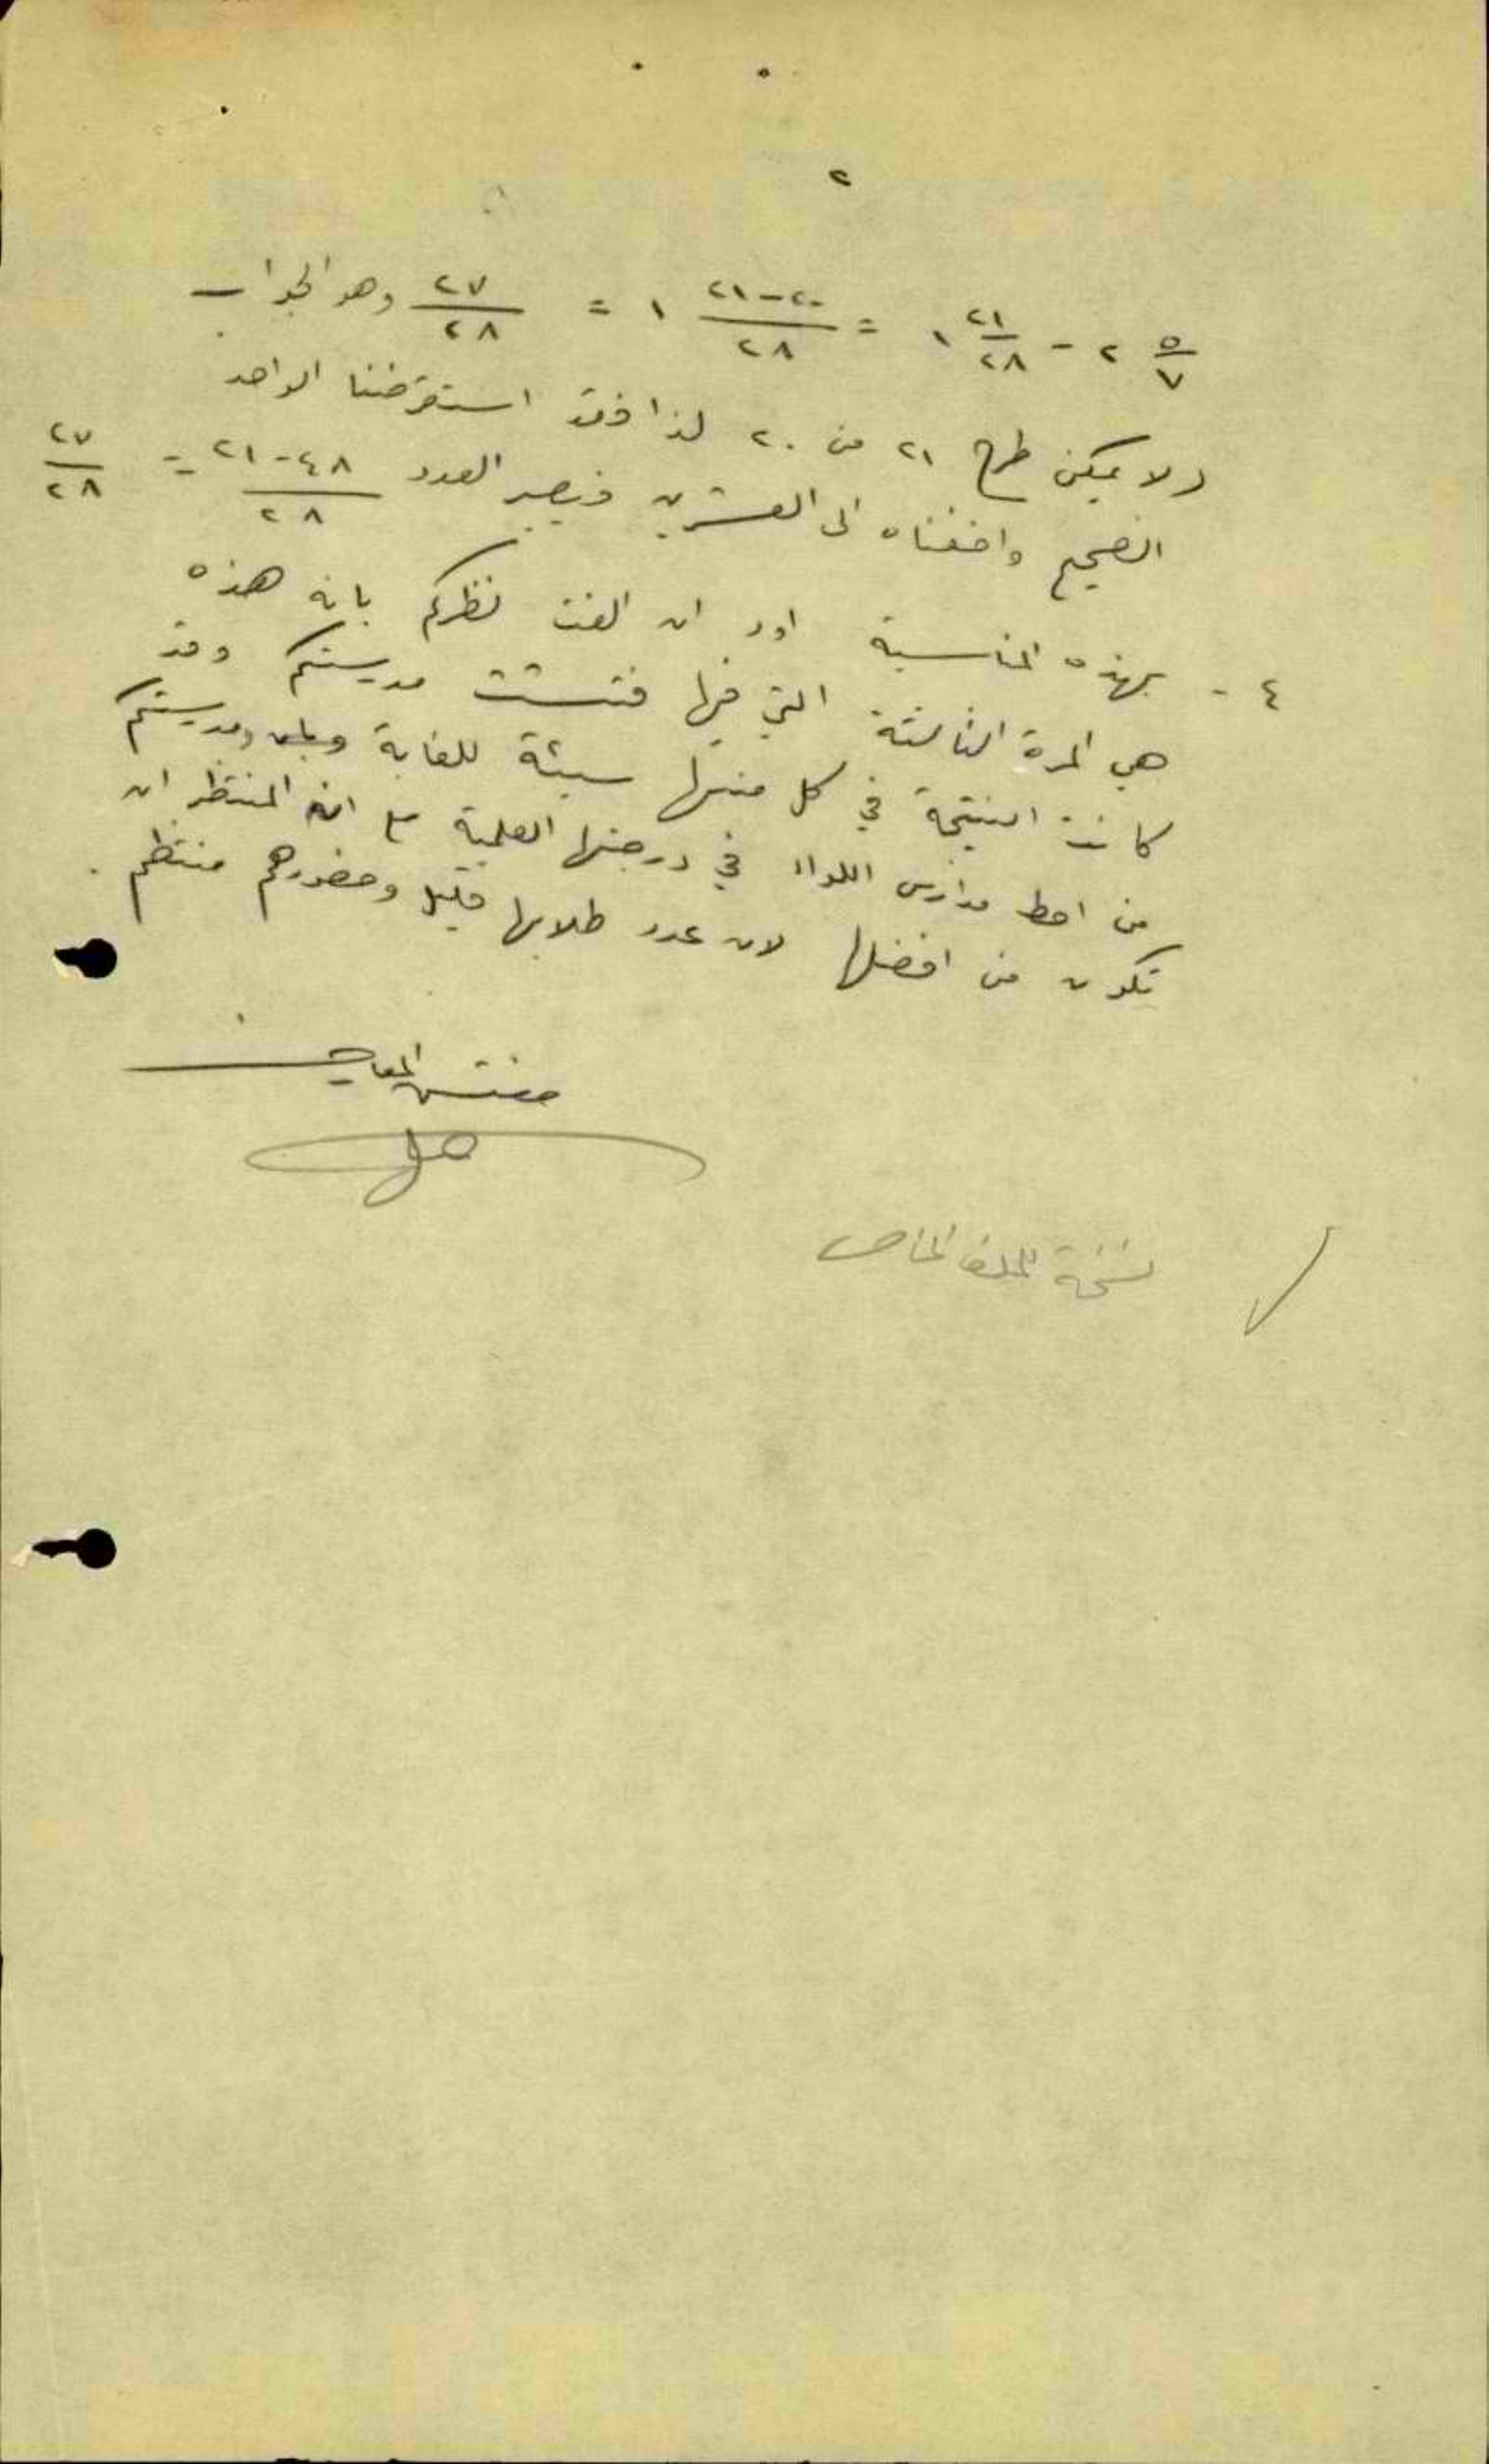 ٢
٥/٧ ٢ - ٢١/٢٨ ١ = ٢٠-٢١/٢٨ ١ = ٢٧/٢٨ وهو الجواب
ولا يمكن طرح ٢١ من ٢٠ لذا فقد استقرضنا الواحد
الصحيح واضفناه الى العشرين فيصير العدد ٤٨-٢١/٢٨ = ٢٧/٢٨
٤ - بهذه المناسبة اود ان الفت نظركم بان هذه
هي المرة الثالثة التي فيها فتشت مدرستكم وقد
كانت النتيجة في كل منها سيئة للغاية ومدرستكم
من احط مدارس اللواء في درجتها العلمية مع ان المنتظر ان
تكون من افضلها لان عدد طلابها قليل وحضورهم منتظم .
مفتش المعارف
نسخة للملف الخاص